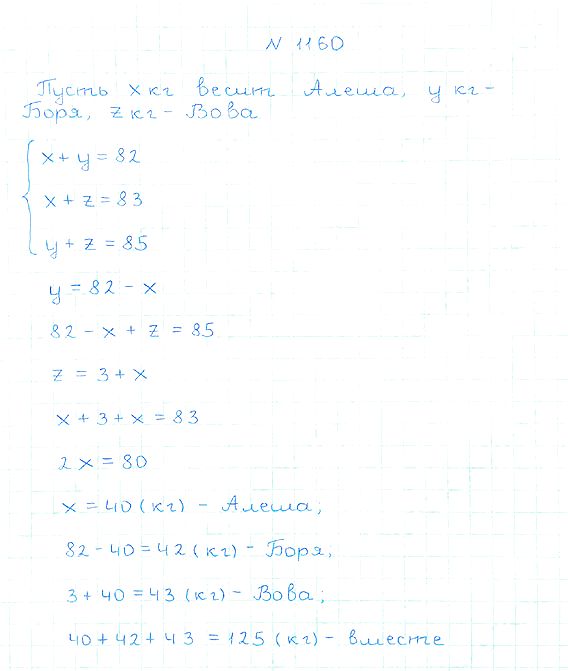 N 1160
Пусть x кг весит Алеша, y кг -
Боря, z кг - Вова
x + y = 82
x + z = 83
y + z = 85
y = 82 - x
82 - x + z = 85
z = 3 + x
x + 3 + x = 83
2 x = 80
x = 40 (кг) - Алеша;
82 - 40 = 42 (кг) - Боря,
3 + 40 = 43 (кг) - Вова;
40 + 42 + 43 = 125 (кг) - вместе